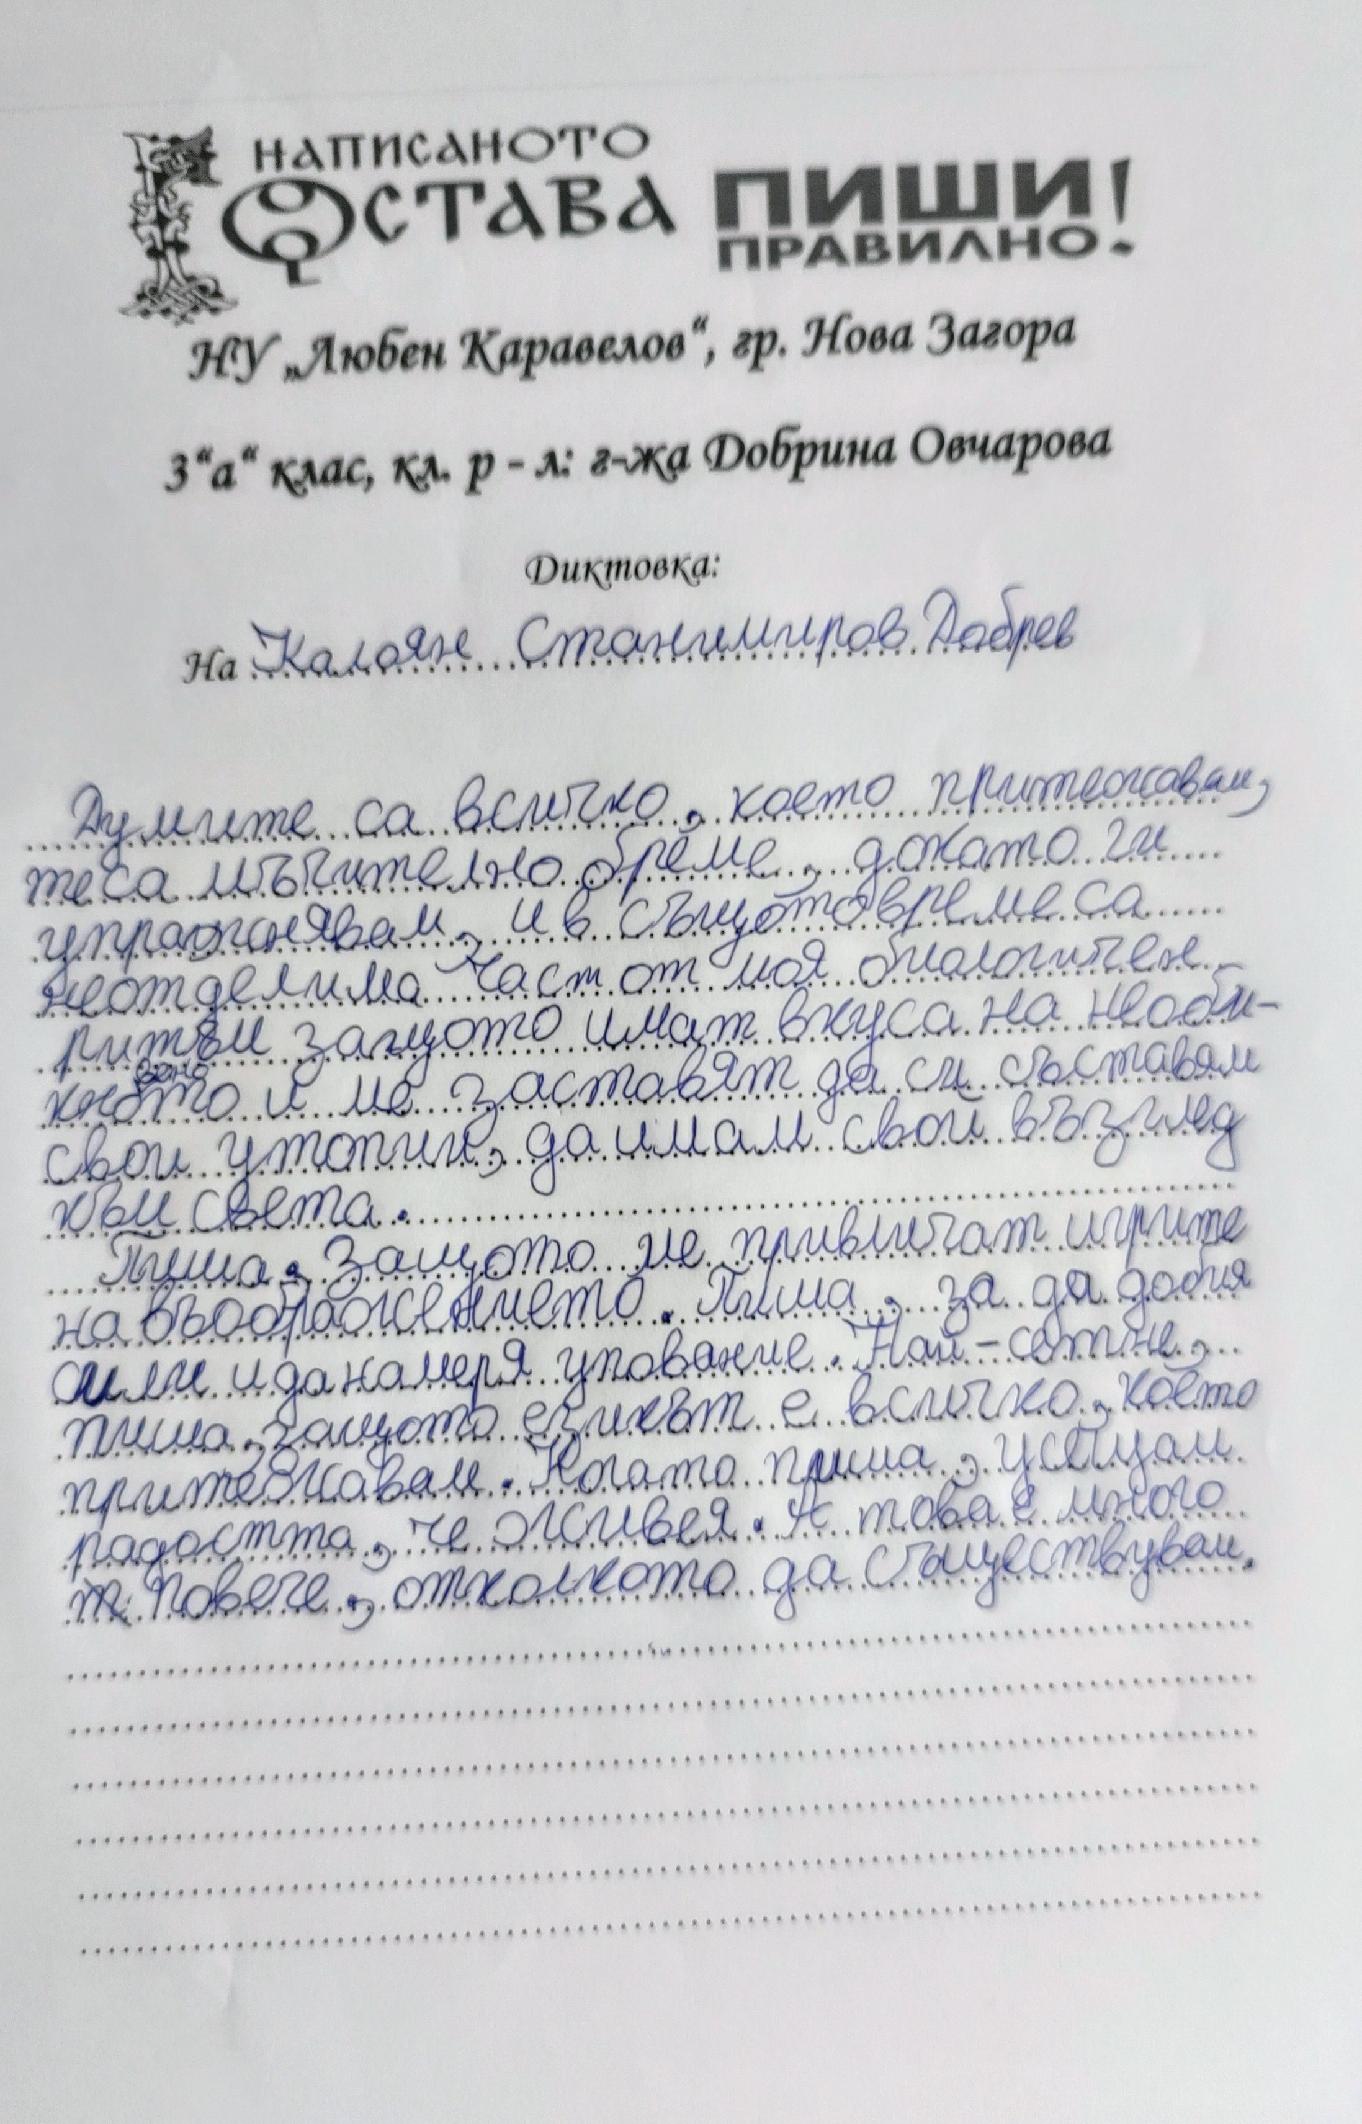 НАПИСАНОТО
ОСТАВА
ПИШИ!
ПРАВИЛНО.
НУ „Любен Каравелов“, гр. Нова Загора
3“а“ клас, кл. р - л: г-жа Добрина Овчарова
Диктовка:
На Калоян Станимиров Добрев
Думите са всичко, което притежавам,
те са мъчително бреме, докато ги
упражнявам, и в същото време са
неотделима част от моя биологичен
ритъм защото имат вкуса на необи-
кновеното и ме заставят да си съставям
свои утопии, да имам свой възглед
към света.
Пиша, защото ме привличат игрите
на въображението. Пиша, за да добия
сили и да намеря упование. Най-сетне,
пиша, защото езикът е всичко, което
притежавам. Когато пиша, усещам
радостта, че живея. А това е много
повече, отколкото да съществувам.